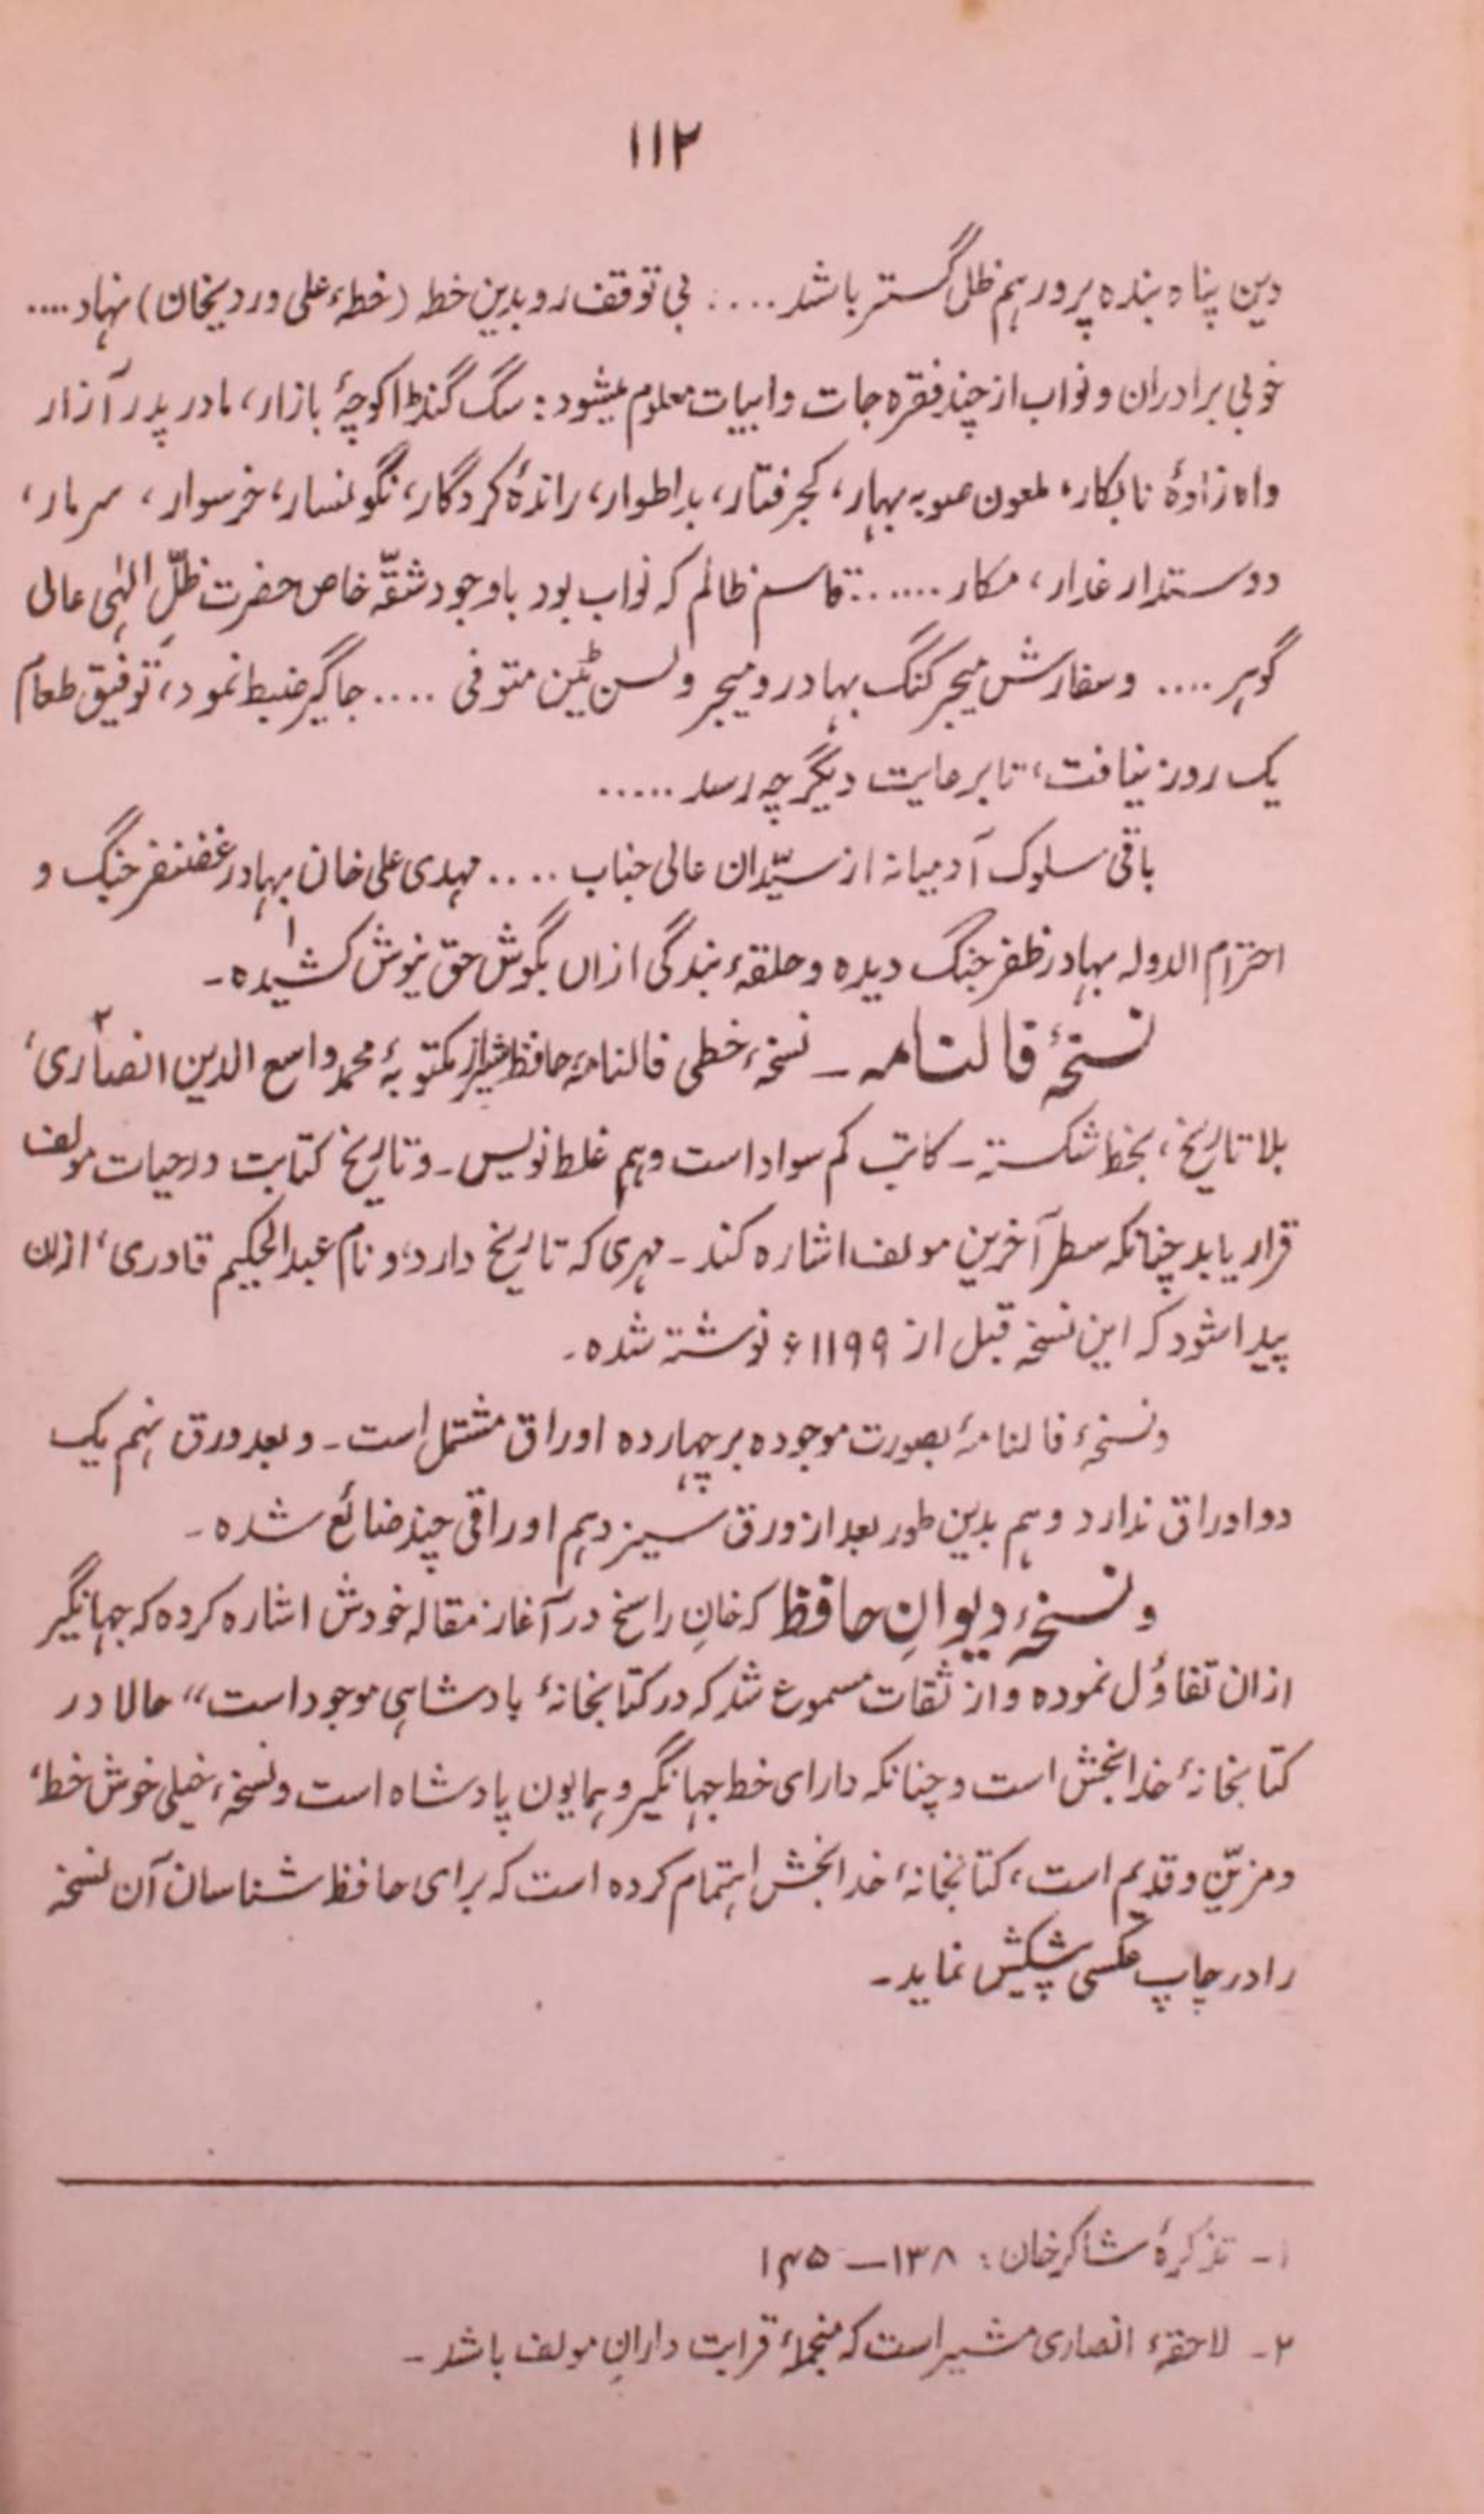 ۱۱۲
دین پناہ بندہ پرور ہم ظل گستر باشد .... بی توقف رو بدین خطہ (خطہء علی وردیخان) نہاد ....
خوبی برادران و نواب از چند فقرہ جات و ابیات معلوم میشود : سگ گنڈا کوچۂ بازار، مادر پدر آزار
واہ زادۂ نابکار، لمعون صوبہ بہار، کجرفتار، بداطوار، راندۂ کردگار، نگونسار، خرسوار، سرمار،
دوستدار غدار، مکار ...... قاسم ظالم کہ نواب بود باوجود شقّہ خاص حضرت ظلّ الٰہی عالی
گوہر .... و سفارش میجر کنگ بہادر و میجر ولسن ٹین متوفی .... جاگیر ضبط نمود، توفیق طعام
یک روز نیافت، تا برعایت دیگر چہ رسد .....
باقی سلوک آدمیانہ از سیّدان عالی جناب .... مہدی علی خان بہادر غضنفر جنگ و
احترام الدولہ بہادر ظفر جنگ دیدہ و حلقہء بندگی ازاں بگوش حق نیوش کشیدہ۔۱
نسخۂ فالنامہ ـ نسخہء خطی فالنامۂ حافظ شیراز مکتوبۂ محمد واسع الدین انصاری۲،
بلا تاریخ، بخط شکستہ ـ کاتب کم سواد است و ہم غلط نویس ـ و تاریخ کتابت در حیات مولف
قرار یابد چنانکہ سطر آخرین مولف اشارہ کند ـ مہری کہ تاریخ دارد و نام عبدالحکیم قادری، ازان
پیدا شود کہ این نسخہ قبل از ۱۱۹۹ء نوشتہ شدہ۔
و نسخہء فالنامۂ بصورت موجودہ بر چہاردہ اوراق مشتمل است ـ و بعد ورق نہم یک
دو اوراق ندارد و ہم بدین طور بعد از ورق سیزدہم اوراقی چند ضائع شدہ ـ
و نسخہء دیوانِ حافظ کہ خانِ راسخ در آغاز مقالہ خودش اشارہ کردہ کہ جہانگیر
ازان تفاؤل نمودہ و از ثقات مسموع شد کہ در کتابخانۂ بادشاہی موجود است" حالا در
کتابخانۂ خدابخش است و چنانکہ دارای خط جہانگیر و ہمایون پادشاہ است و نسخہء خیلی خوش خط،
و مزیّن و قدیم است، کتابخانۂ خدابخش اہتمام کردہ است کہ برای حافظ شناسان آن نسخہ
را در چاپ عکسی پیشکش نماید۔
۱ـ تذکرۂ شاکر خان : ۱۳۸ — ۱۴۵
۲ـ لاحقہء انصاری مشیر است کہ منجملۂ قرابت دارانِ مولف باشد ـ